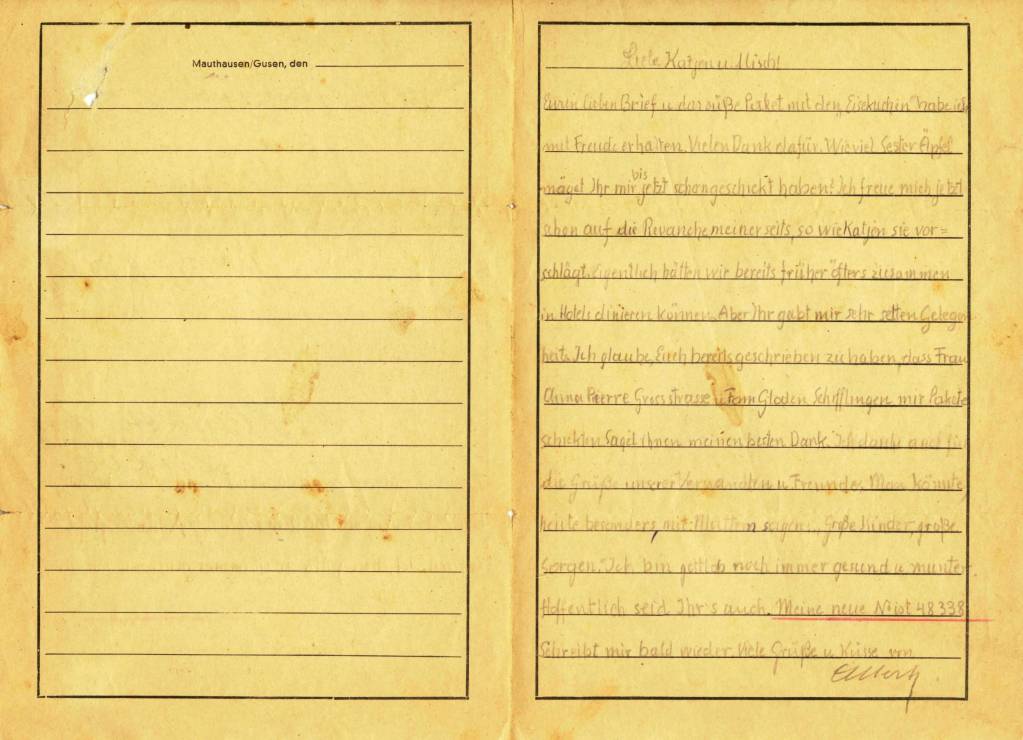 Mauthausen/Gusen, den
Liebe Katjen u. Misch!
Euren lieben Brief u. das süße Paket mit den „Eisekuchen" habe ich
mit Freude erhalten. Vielen Dank dafür. Wieviel Sester Äpfel
möget Ihr mir bis jetzt schon geschickt haben! Ich freue mich jetzt
schon auf die Revanche meinerseits, so wie Katjen sie vor=
schlägt. Eigentlich hätten wir bereits früher öfters zusammen
in Hotels dinieren können. Aber Ihr gabt mir sehr selten Gelegen
heit. Ich glaube, Euch bereits geschrieben zu haben, dass Frau
Anna Pierre Grossstrasse u. Fam Gloden Schifflingen mir Pakete
schickten. Saget ihnen meinen besten Dank. Ich danke auch für
die Grüße unserer Verwandten u. Freunde. Man könnte
heute besonders mit Muttern sagen: „Große Kinder, große
Sorgen." Ich bin gottlob noch immer gesund u. munter.
Hoffentlich seid Ihr's auch. Meine neue N° ist 48338
Schreibt mir bald wieder. Viele Grüße u. Küsse von